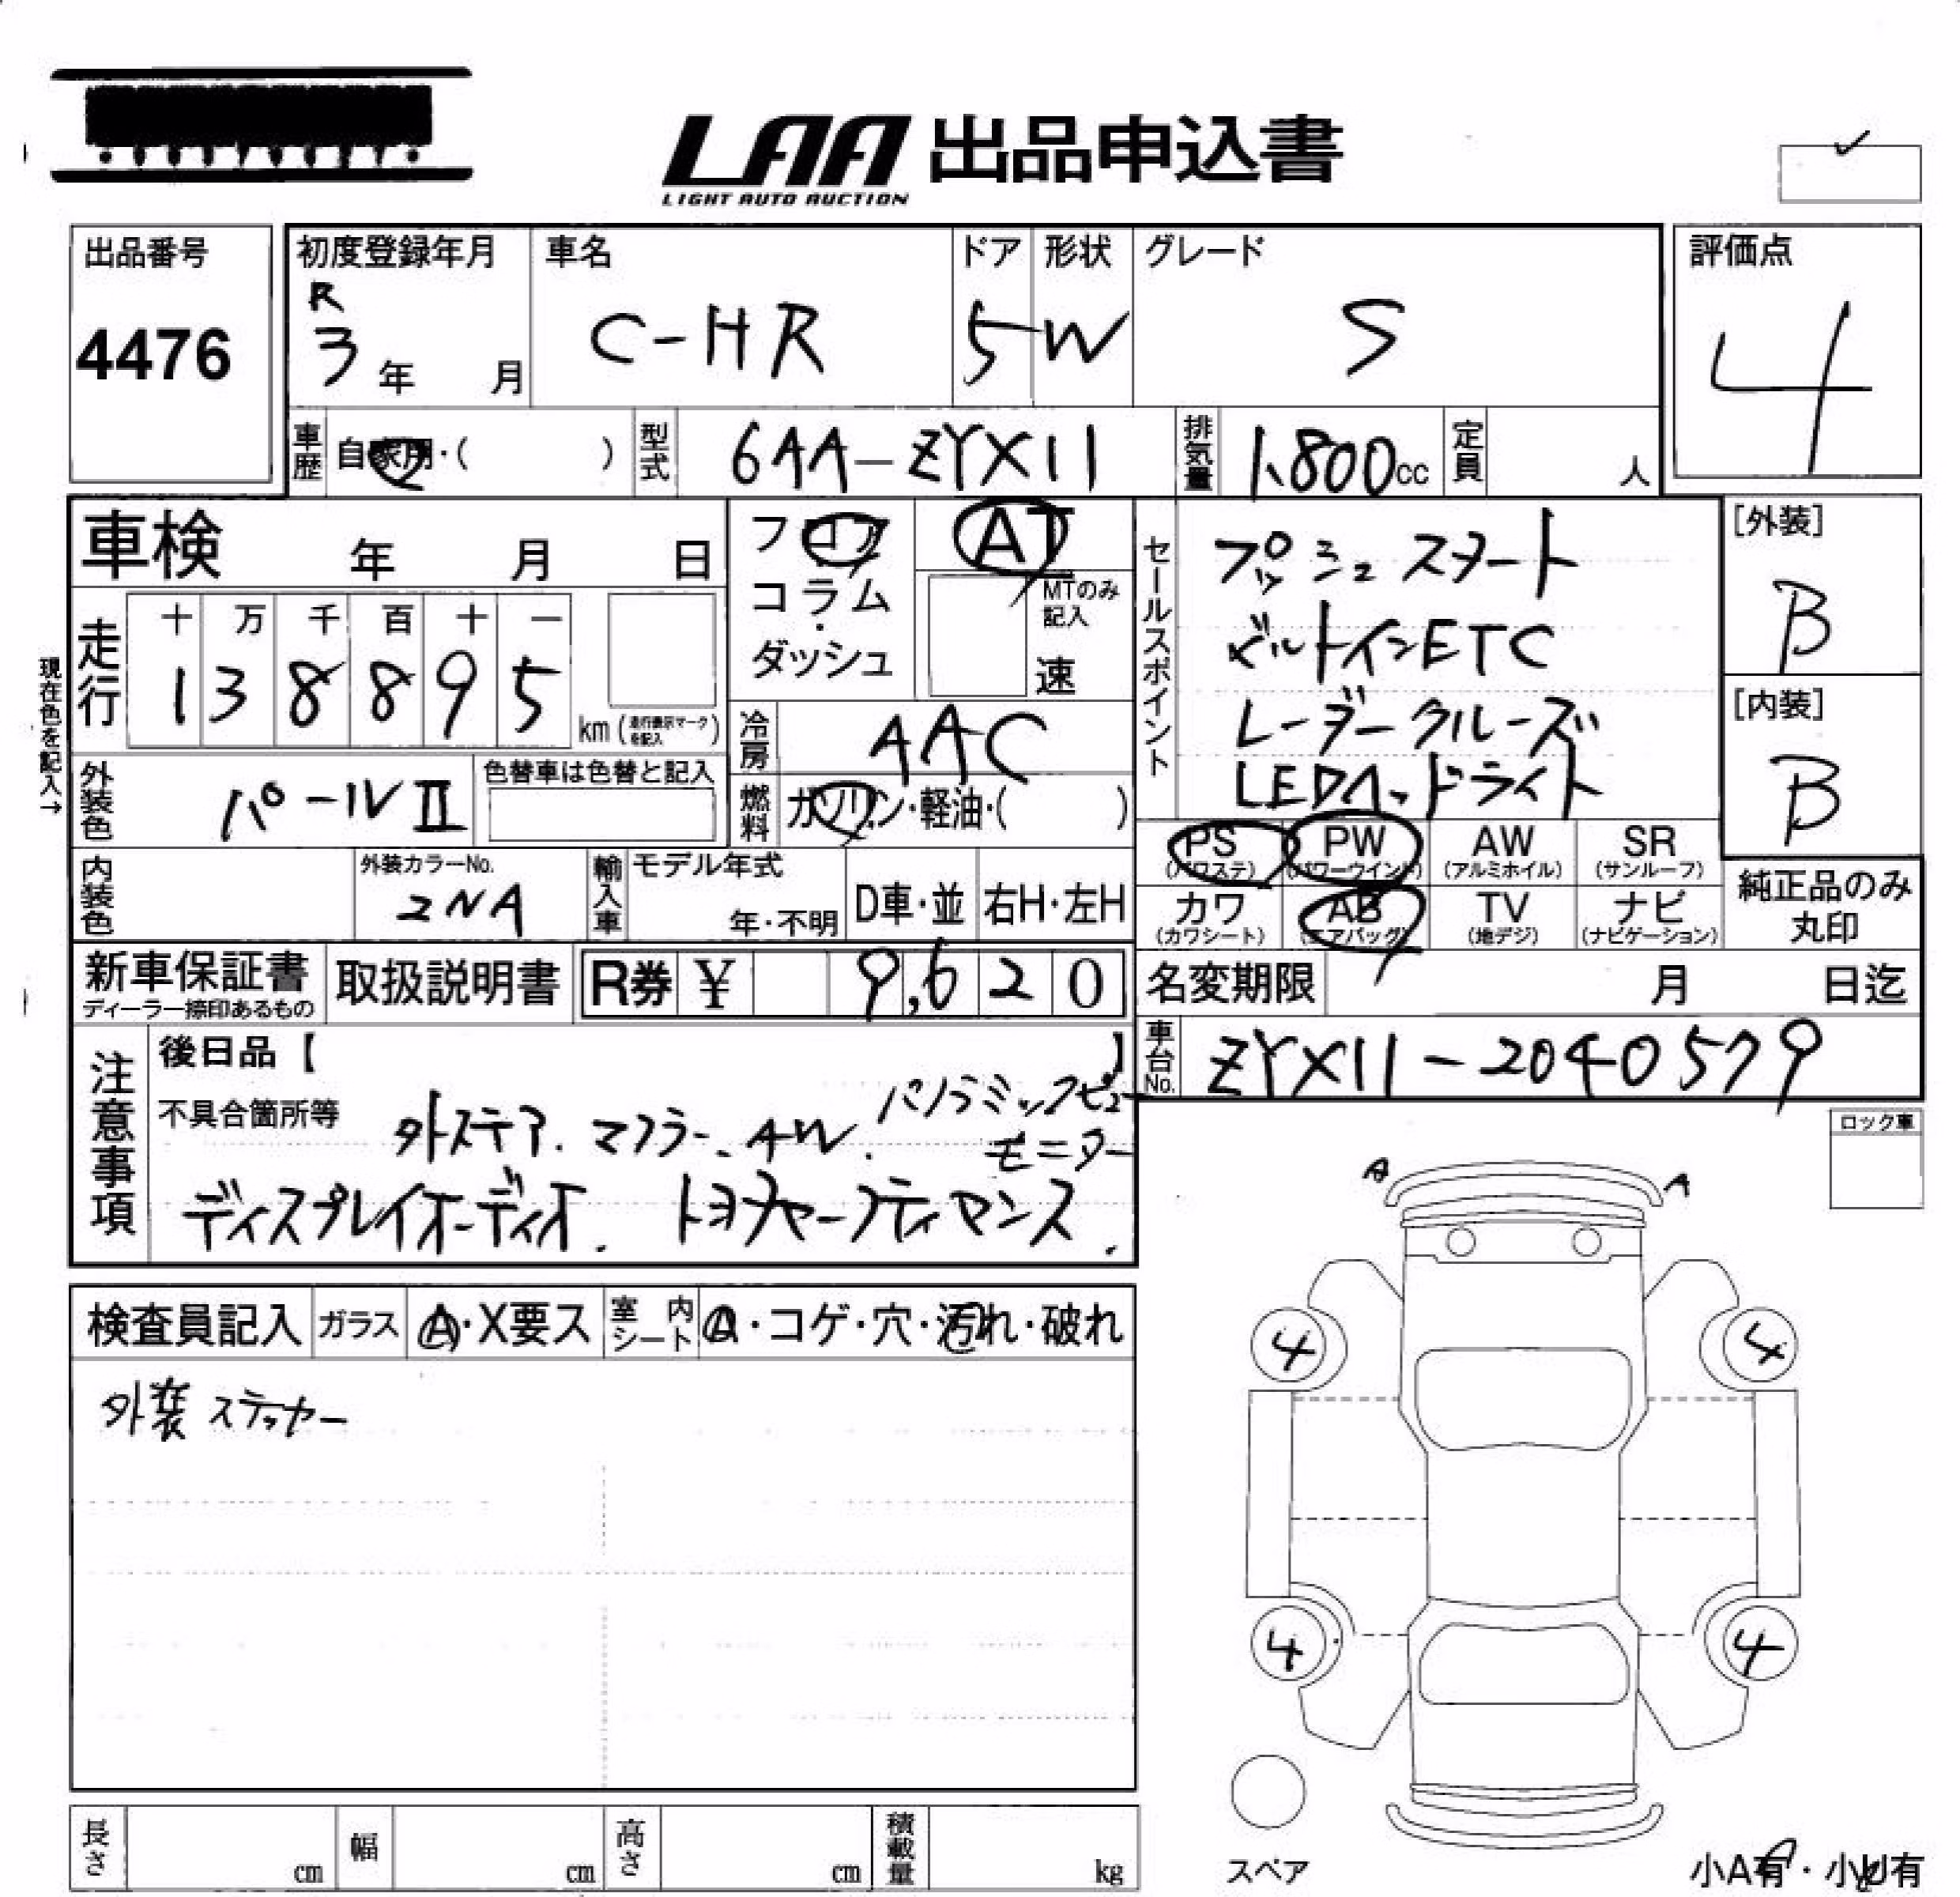 LAA 出品申込書
LIGHT AUTO AUCTION
出品番号
4476
初度登録年月
R
3年 月
車名
C-HR
ドア
5
形状
W
グレード
S
評価点
4
車歴 自家用・( )
型式 6AA-ZYX11
排気量 1,800cc
定員 人
車検 年 月 日
フロア
コラム
・
ダッシュ
AT
MTのみ
記入
速
セールスポイント
プッシュスタート
ビルトインETC
レーダークルーズ
LEDヘッドライト
[外装]
B
[内装]
B
現在色を記入→
走行
十 万 千 百 十 一
1 3 8 8 9 5
km (走行表示マークを記入)
冷房 AAC
外装色 パールⅡ
色替車は色替と記入
燃料 ガソリン・軽油・( )
PS (パワステ)
PW (パワーウインド)
AW (アルミホイル)
SR (サンルーフ)
カワ (カワシート)
AB (エアバッグ)
TV (地デジ)
ナビ (ナビゲーション)
純正品のみ
丸印
内装色
外装カラーNo.
2NA
輸入車
モデル年式
年・不明
D車・並
右H・左H
新車保証書
ディーラー捺印あるもの
取扱説明書
R券 ¥ 9,620
名変期限 月 日迄
車台No. ZYX11-2040579
注意事項
後日品【 】
不具合箇所等
外ステア、マフラー、AW.
パノラミックビュー
モニター
ディスプレイオーディオ.
ロック車
A A
検査員記入
ガラス A・X要ス
室内シート A・コゲ・穴・汚れ・破れ
外装 ステッカー
4 4
4 4
スペア
長さ cm
幅 cm
高さ cm
積載量 kg
小A有・小U有